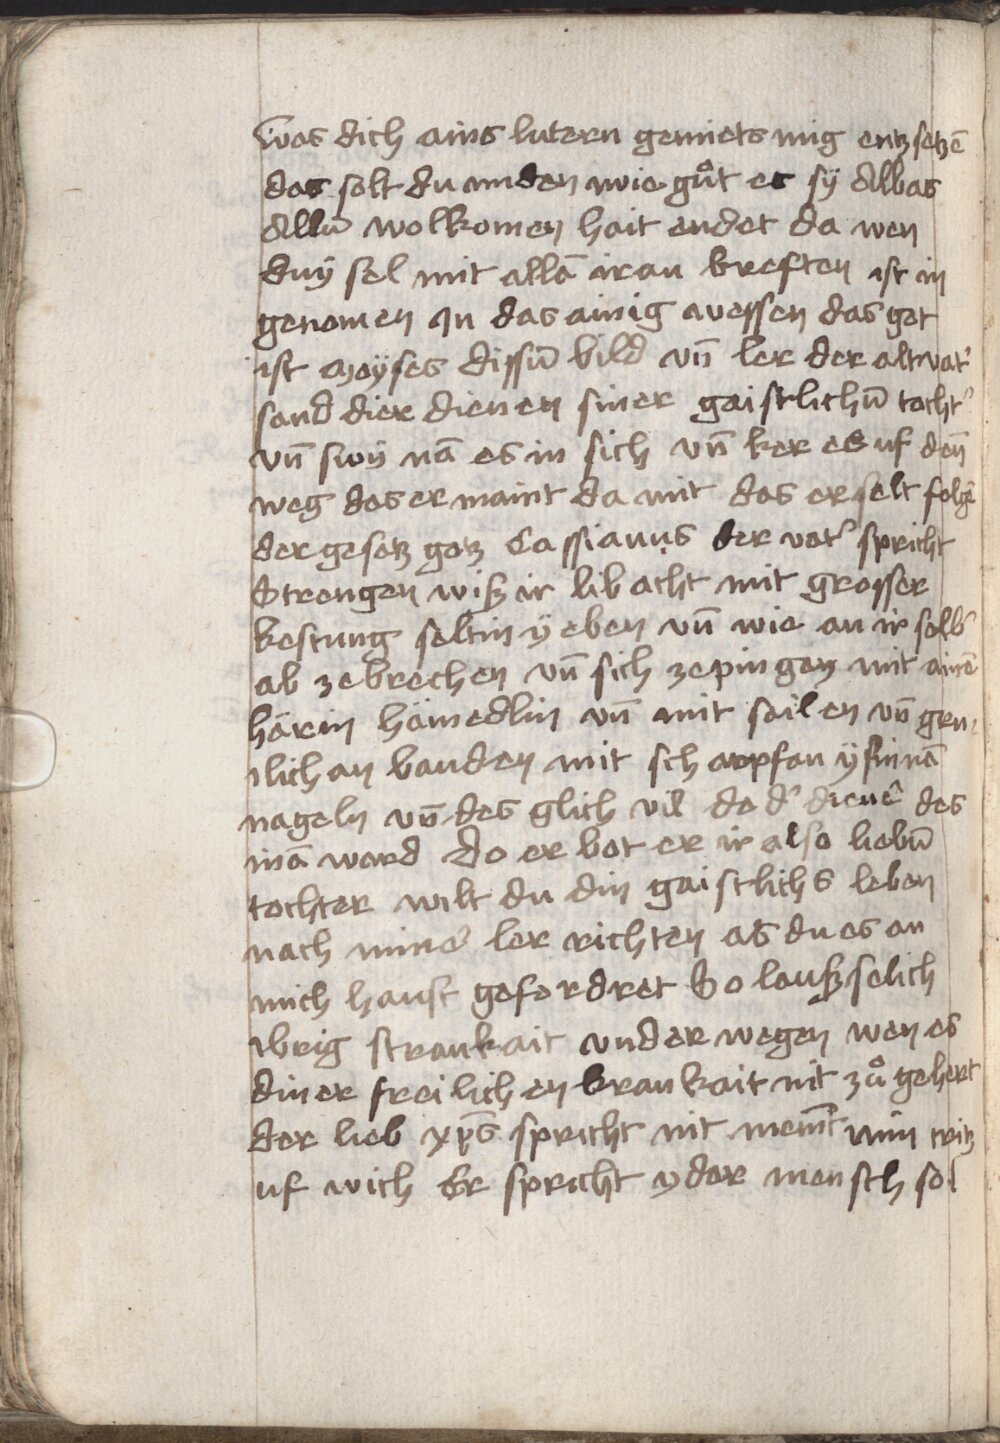 Was dich ains lutern gemiets mig entzsetzē
das solt du miden wie gůt es sÿ Albas
Allū wolkomen hait endet da wen
duÿ sel mit allā iran kreften ist in
genomen In das ainig wessen das got
ist Moÿses dissū bild vn̄ ler der altvat'
sand dier dienen siner gaistlichū tocht'
vn̄ swÿ nā es in sich vn̄ ker es uf den̄
weg das er maint da mit das er selt folgē
der gesatz gotz Cassianus der vat' spricht
Strengen wiß ir lib acht mit grosser
kestung seltin ÿeben vn̄ wie an ir selb'
ab ze brechen vn̄ sich ze pingen mit ainē
härin hämedlin vn̄ mit sailen vn̄ gru-
ilichan banden mit scharpfan ÿsinnā
nageln vn̄ des glich vil do d' dienē des
inā ward Do er bot er ir also liebū
tochter wilt du din gaistlichs leben
nach miner ler richten als du es an
mich haust gefordret So lauß selich
ibrig strankait under wegen wen es
diner freilichen krankait nit zů gehert
der lieb xp̄s spricht nit nemēt min critz
uf wich Er spricht yder mensch sol